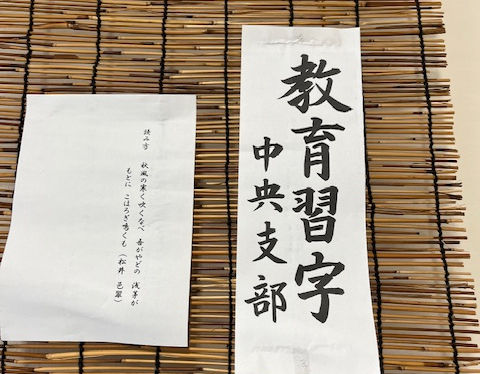 教育習字
中央支部
読み方 秋風の寒く吹くなべ 吾がやどの 浅茅が
もとに こほろぎ鳴くも (松井 邑翠)